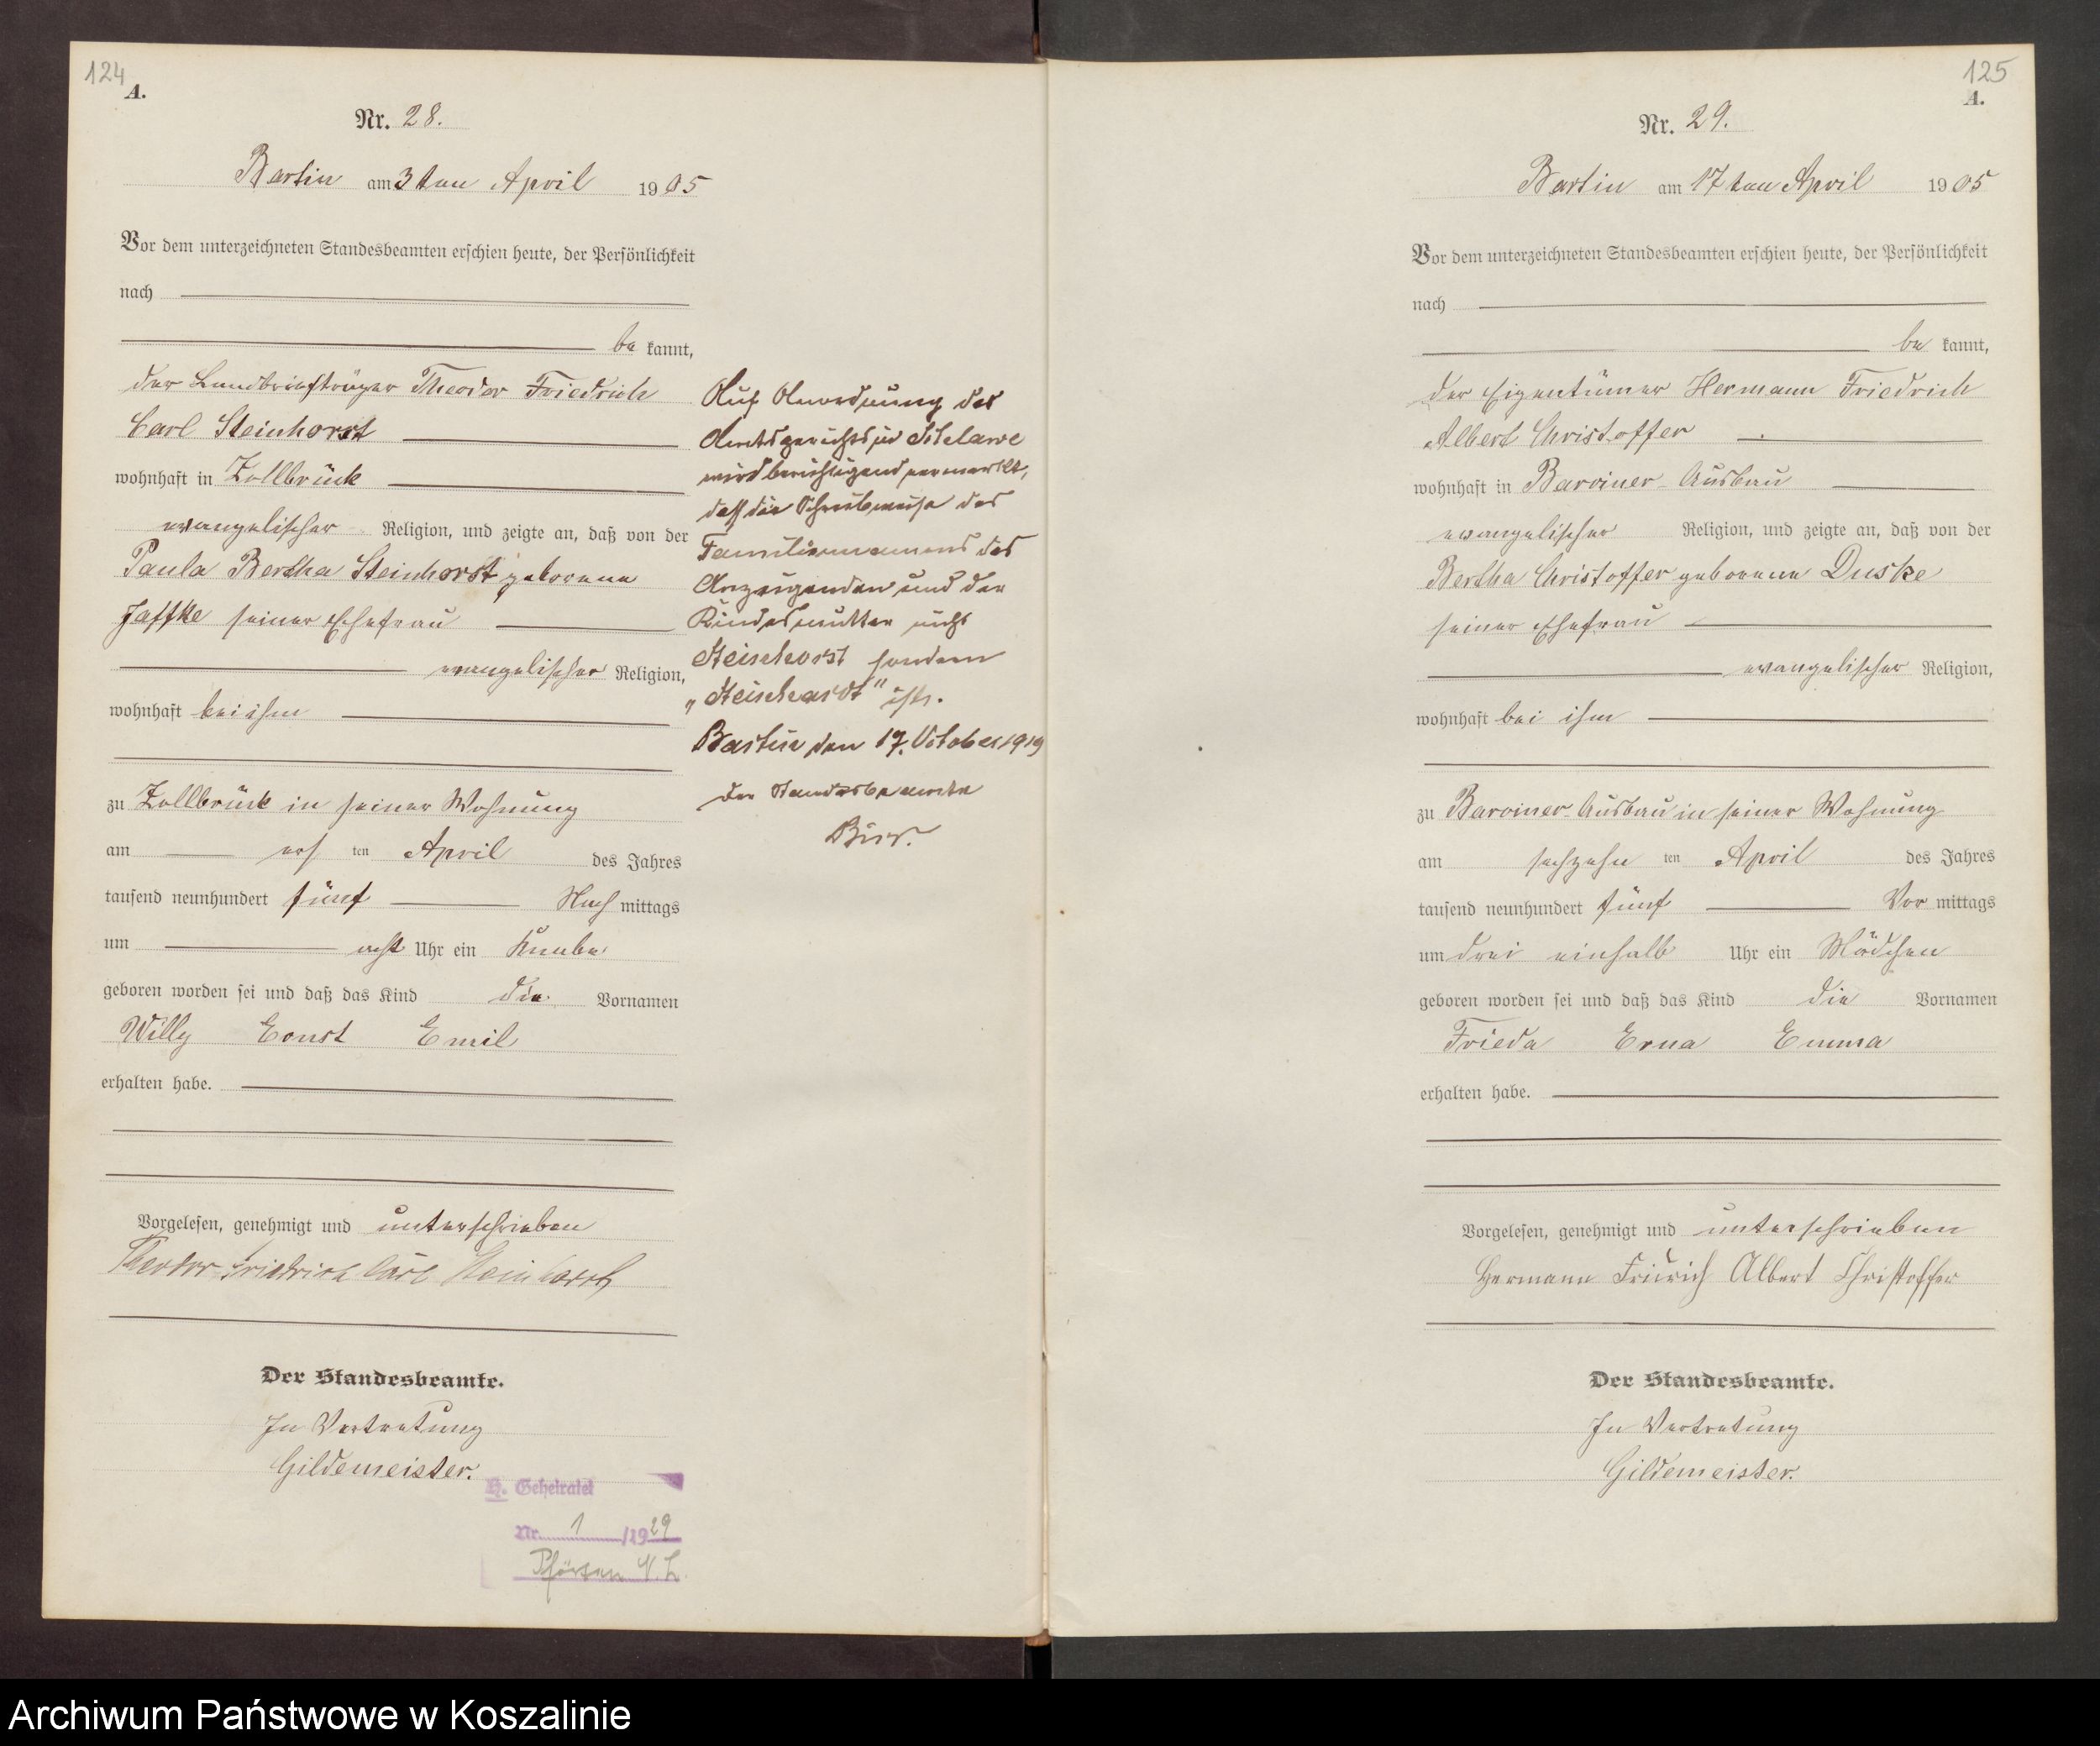 124
A.
Nr. 28.
Bartin am 3ten April 1905
Vor dem unterzeichneten Standesbeamten erschien heute, der Persönlichkeit
nach
be kannt,
der Landbriefträger Theodor Friedrich
Carl Steinhorst
wohnhaft in Zollbrück
evangelischer Religion, und zeigte an, daß von der
Paula Bertha Steinhorst geborene
Jaffke seiner Ehefrau
evangelischer Religion,
wohnhaft bei ihm
zu Zollbrück in seiner Wohnung
am ten April des Jahres
tausend neunhundert fünf Nach mittags
um acht Uhr ein Knabe
geboren worden sei und daß das Kind die Vornamen
Willy Ernst Emil
erhalten habe.
Vorgelesen, genehmigt und unterschrieben
Theodor Friedrich Carl Steinhorst
Der Standesbeamte.
In Vertretung
Gildemeister.
H. Geheiratet
Nr. 1 /1929
Pförten N. L.
Auf Anordnung des
Amtsgerichts in Schlawe
wird berichtigend vermerkt,
daß die Schreibweise des
Familiennamens des
Anzeigenden und der
Kindesmutter nicht
Steinhorst sondern
„Steinhardt" ist.
Bartin den 17. October 1919
Der Standesbeamte
125
A.
Nr. 29.
Bartin am 17ten April 1905
Vor dem unterzeichneten Standesbeamten erschien heute, der Persönlichkeit
nach
be kannt,
der Eigentümer Hermann Friedrich
Albert Christoffer
wohnhaft in Barviner-Ausbau
evangelischer Religion, und zeigte an, daß von der
Bertha Christoffer geborene Duske
seiner Ehefrau
evangelischer Religion,
wohnhaft bei ihm
zu Barviner-Ausbau in seiner Wohnung
am sechzehn ten April des Jahres
tausend neunhundert fünf Vor mittags
um drei einhalb Uhr ein Mädchen
geboren worden sei und daß das Kind die Vornamen
Frieda Erna Emma
erhalten habe.
Vorgelesen, genehmigt und unterschrieben
Hermann Friedrich Albert Christoffer
Der Standesbeamte.
In Vertretung
Gildemeister.
Archiwum Państwowe w Koszalinie